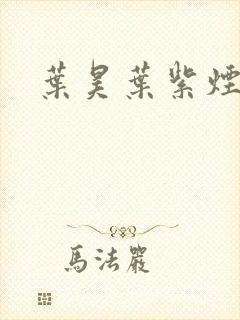 葉昊葉紫煙
馬法嚴